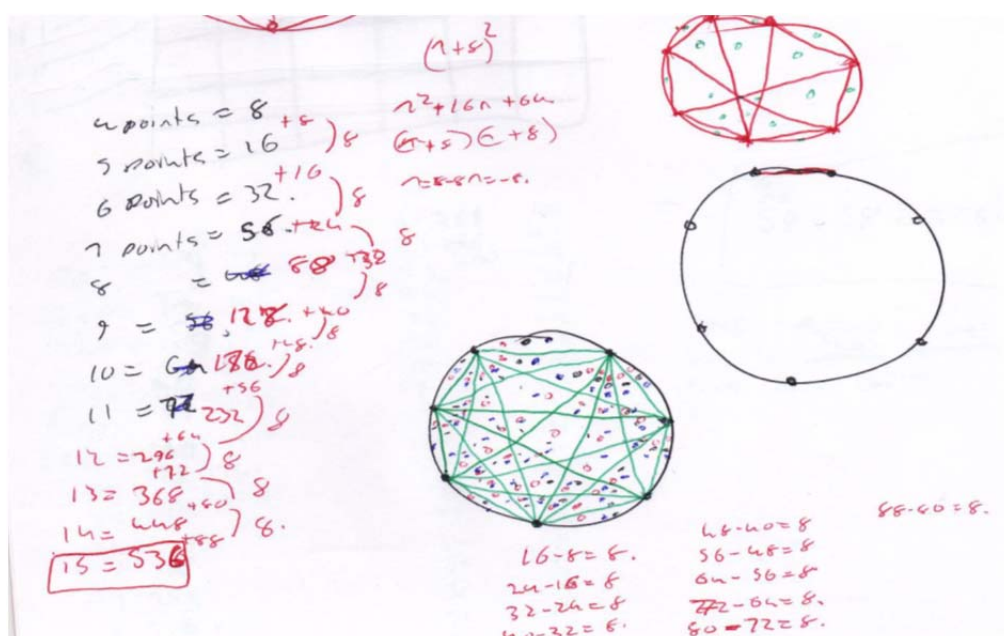 4 points = 8
+8
5 points = 16 ) 8
+16
6 points = 32. ) 8
7 points = 56. +24 ) 8
8 = 88 +32 ) 8
9 = 128. +40 ) 8
+48.
10 = 176. ) 8
+56
11 = 232 ) 8
+64
12 = 296 ) 8
+72
13 = 368 ) 8
+80
14 = 448 ) 8.
+88
15 = 536
(n+8)²
n²+16n+64
(n+8)(n+8)
n=8-8n=-8.
16-8=8.
24-16=8
32-24=8
40-32=8.
48-40=8
56-48=8
64-56=8
72-64=8.
80-72=8.
88-80=8.